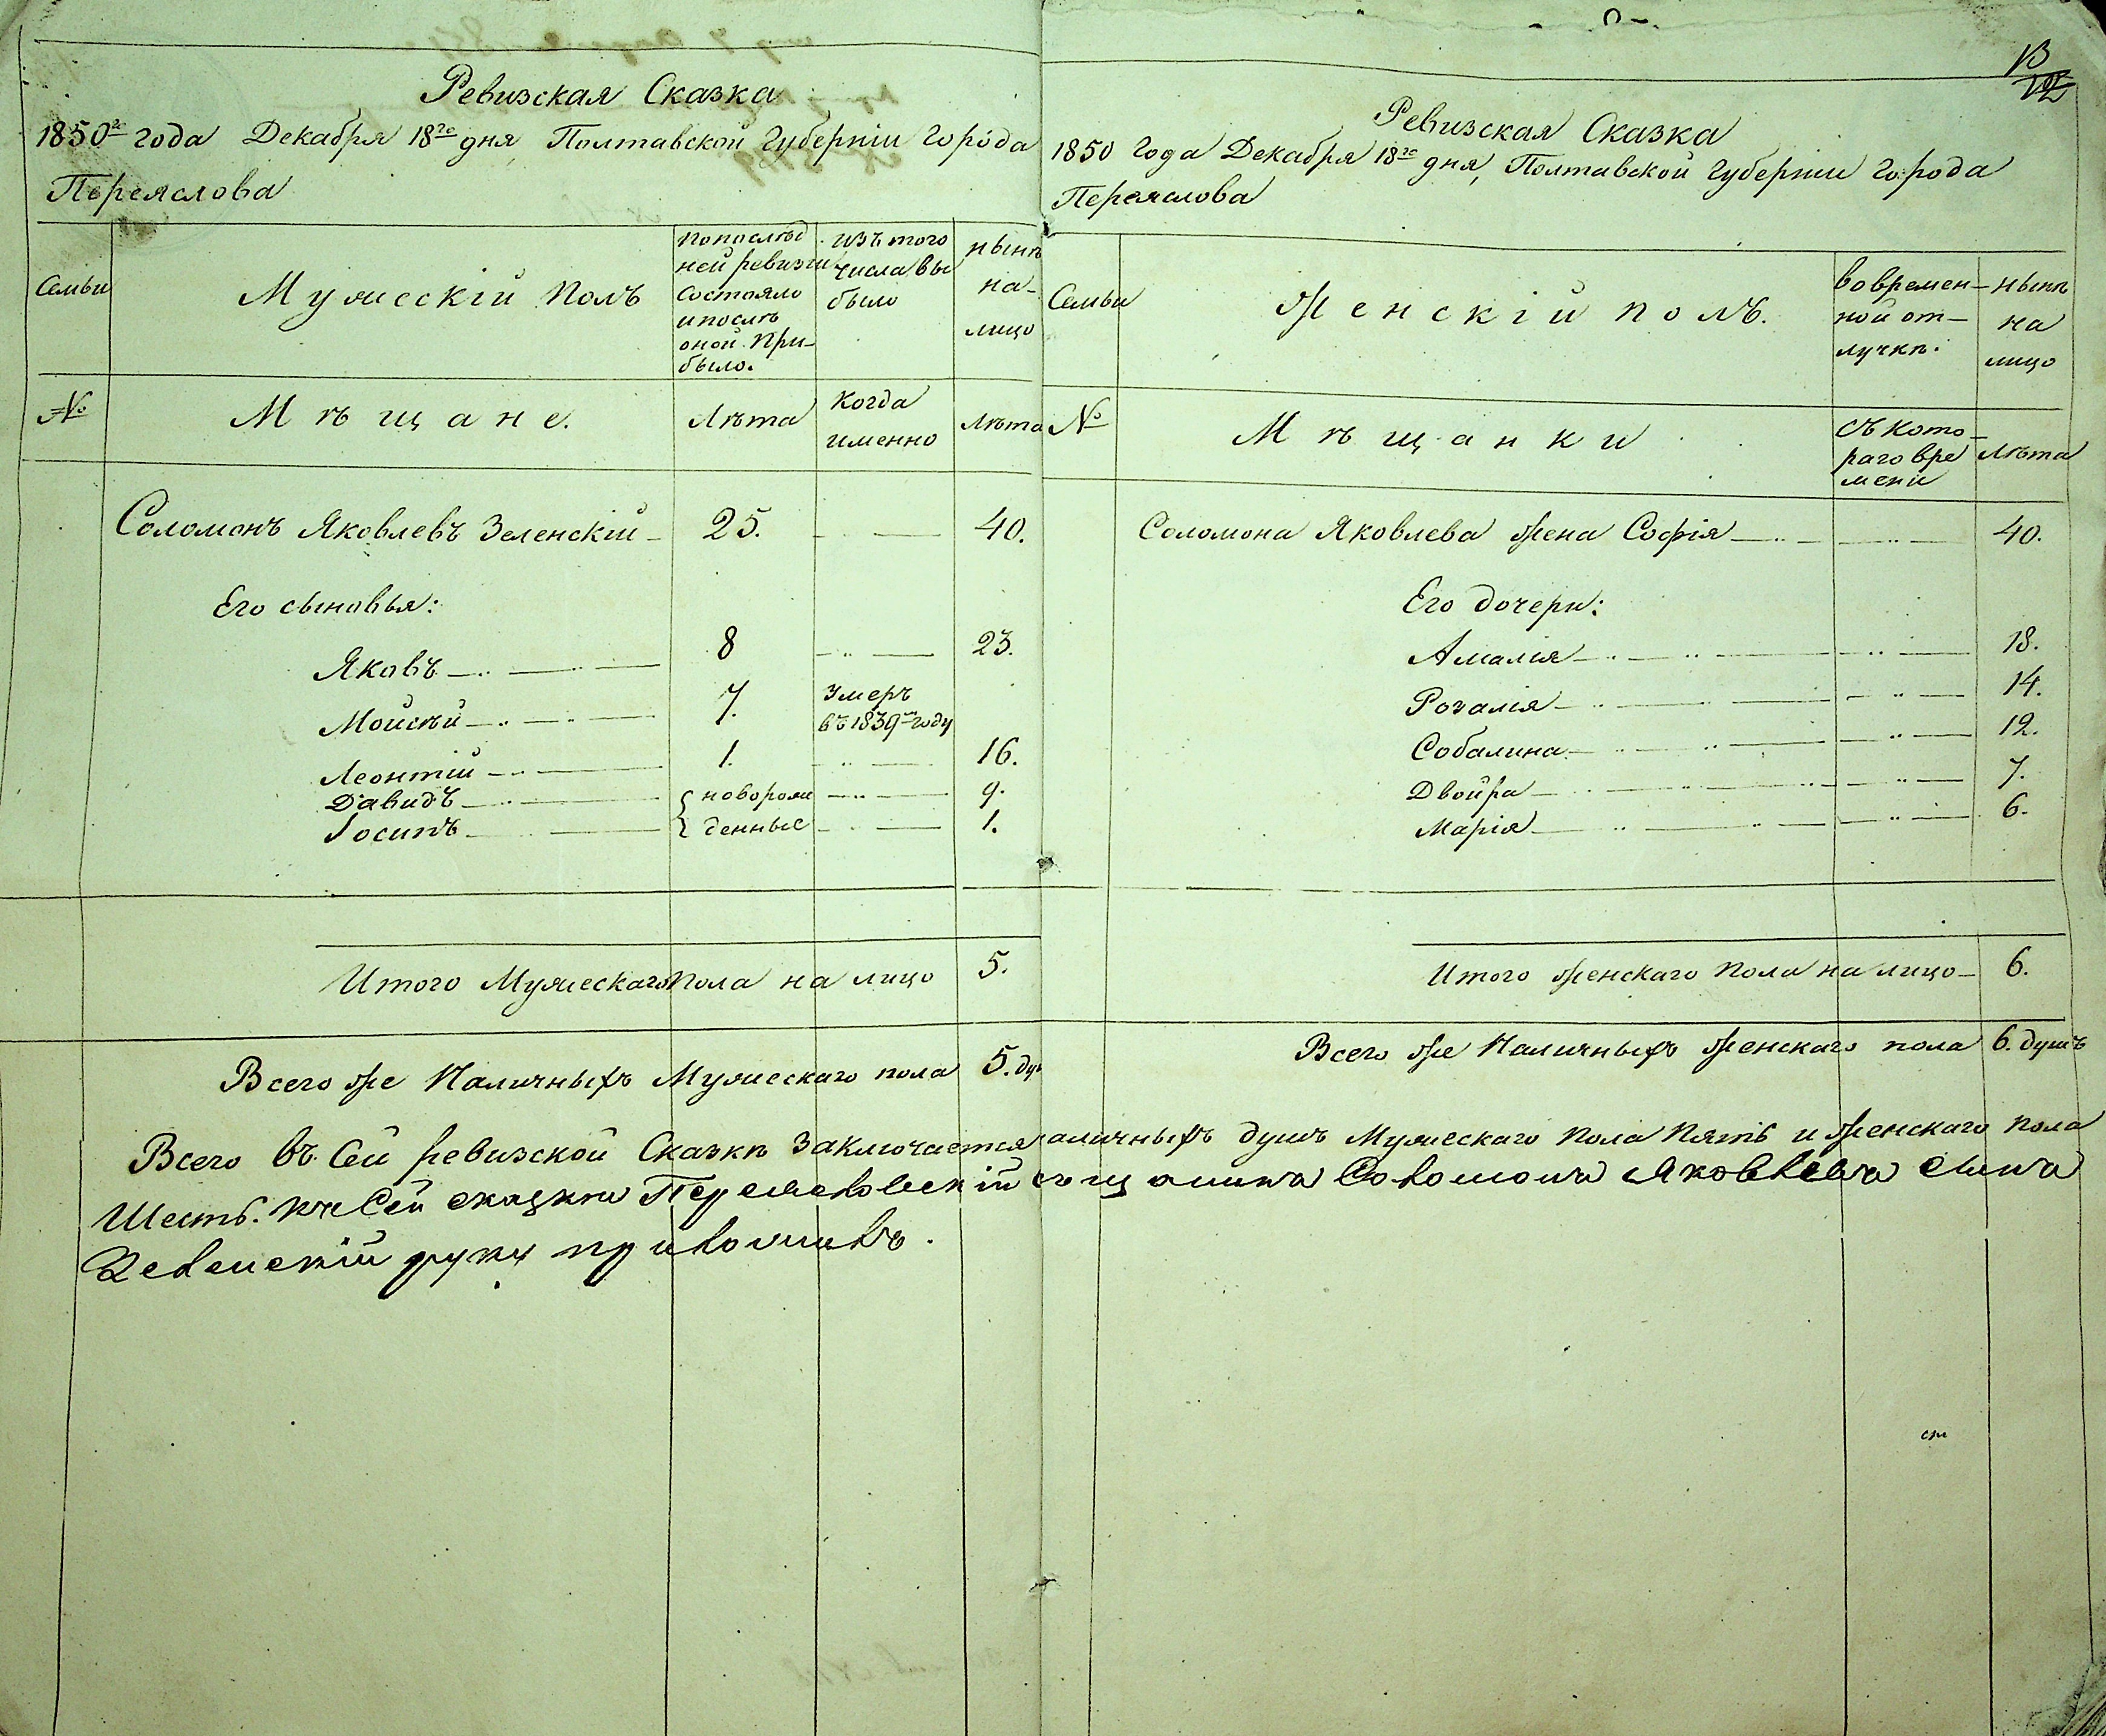 Ревизская Сказка
1850го года Декабря 18го дня, Полтавской Губерніи Города
Переяслова
Семьи
Мужескій Полъ
попослѣд
ней ревизіи
состояло
ипослѣ
оной При-
было.
изъ того
числа вы
было
нынѣ
на-
лицо
№
Мѣщане.
Лѣта
Когда
именно
Лѣта
Соломонъ Яковлевъ Зеленскій 25. 40.
Его сыновья:
Яковъ 8 23.
Мойсѣй 7. Умеръ
въ 1839м году
Леонтій 1. 16.
Давидъ новорож 9.
Іосипъ денные 1.
Итого Мужескаго Пола на лицо 5.
Всего же Наличныхъ Мужескаго пола 5. ду
13
Ревизская Сказка
1850 Года Декабря 18го дня, Полтавской Губерніи Города
Переяслова
Семьи
Женскій полъ.
вовремен-
ной от-
лучкѣ.
нынѣ
на
лицо
№
Мѣщанки
съ кото-
раго вре
мени
Лѣта
Соломона Яковлева жена Софія 40.
Его дочери:
Амалія 18.
Розалія 14.
Собалина 12.
Двойра 7.
Марія 6.
Итого женскаго Пола на лицо 6.
Всего же Наличныхъ женскаго пола 6. душъ
Всего въ Сей ревизской Сказкѣ Заключается наличныхъ душъ Мужескаго Пола Пять и женскаго Пола
Шесть. Къ Сей сказки Переясловскій Соломона Яковлева сина
Зеленскій руку приложилъ.